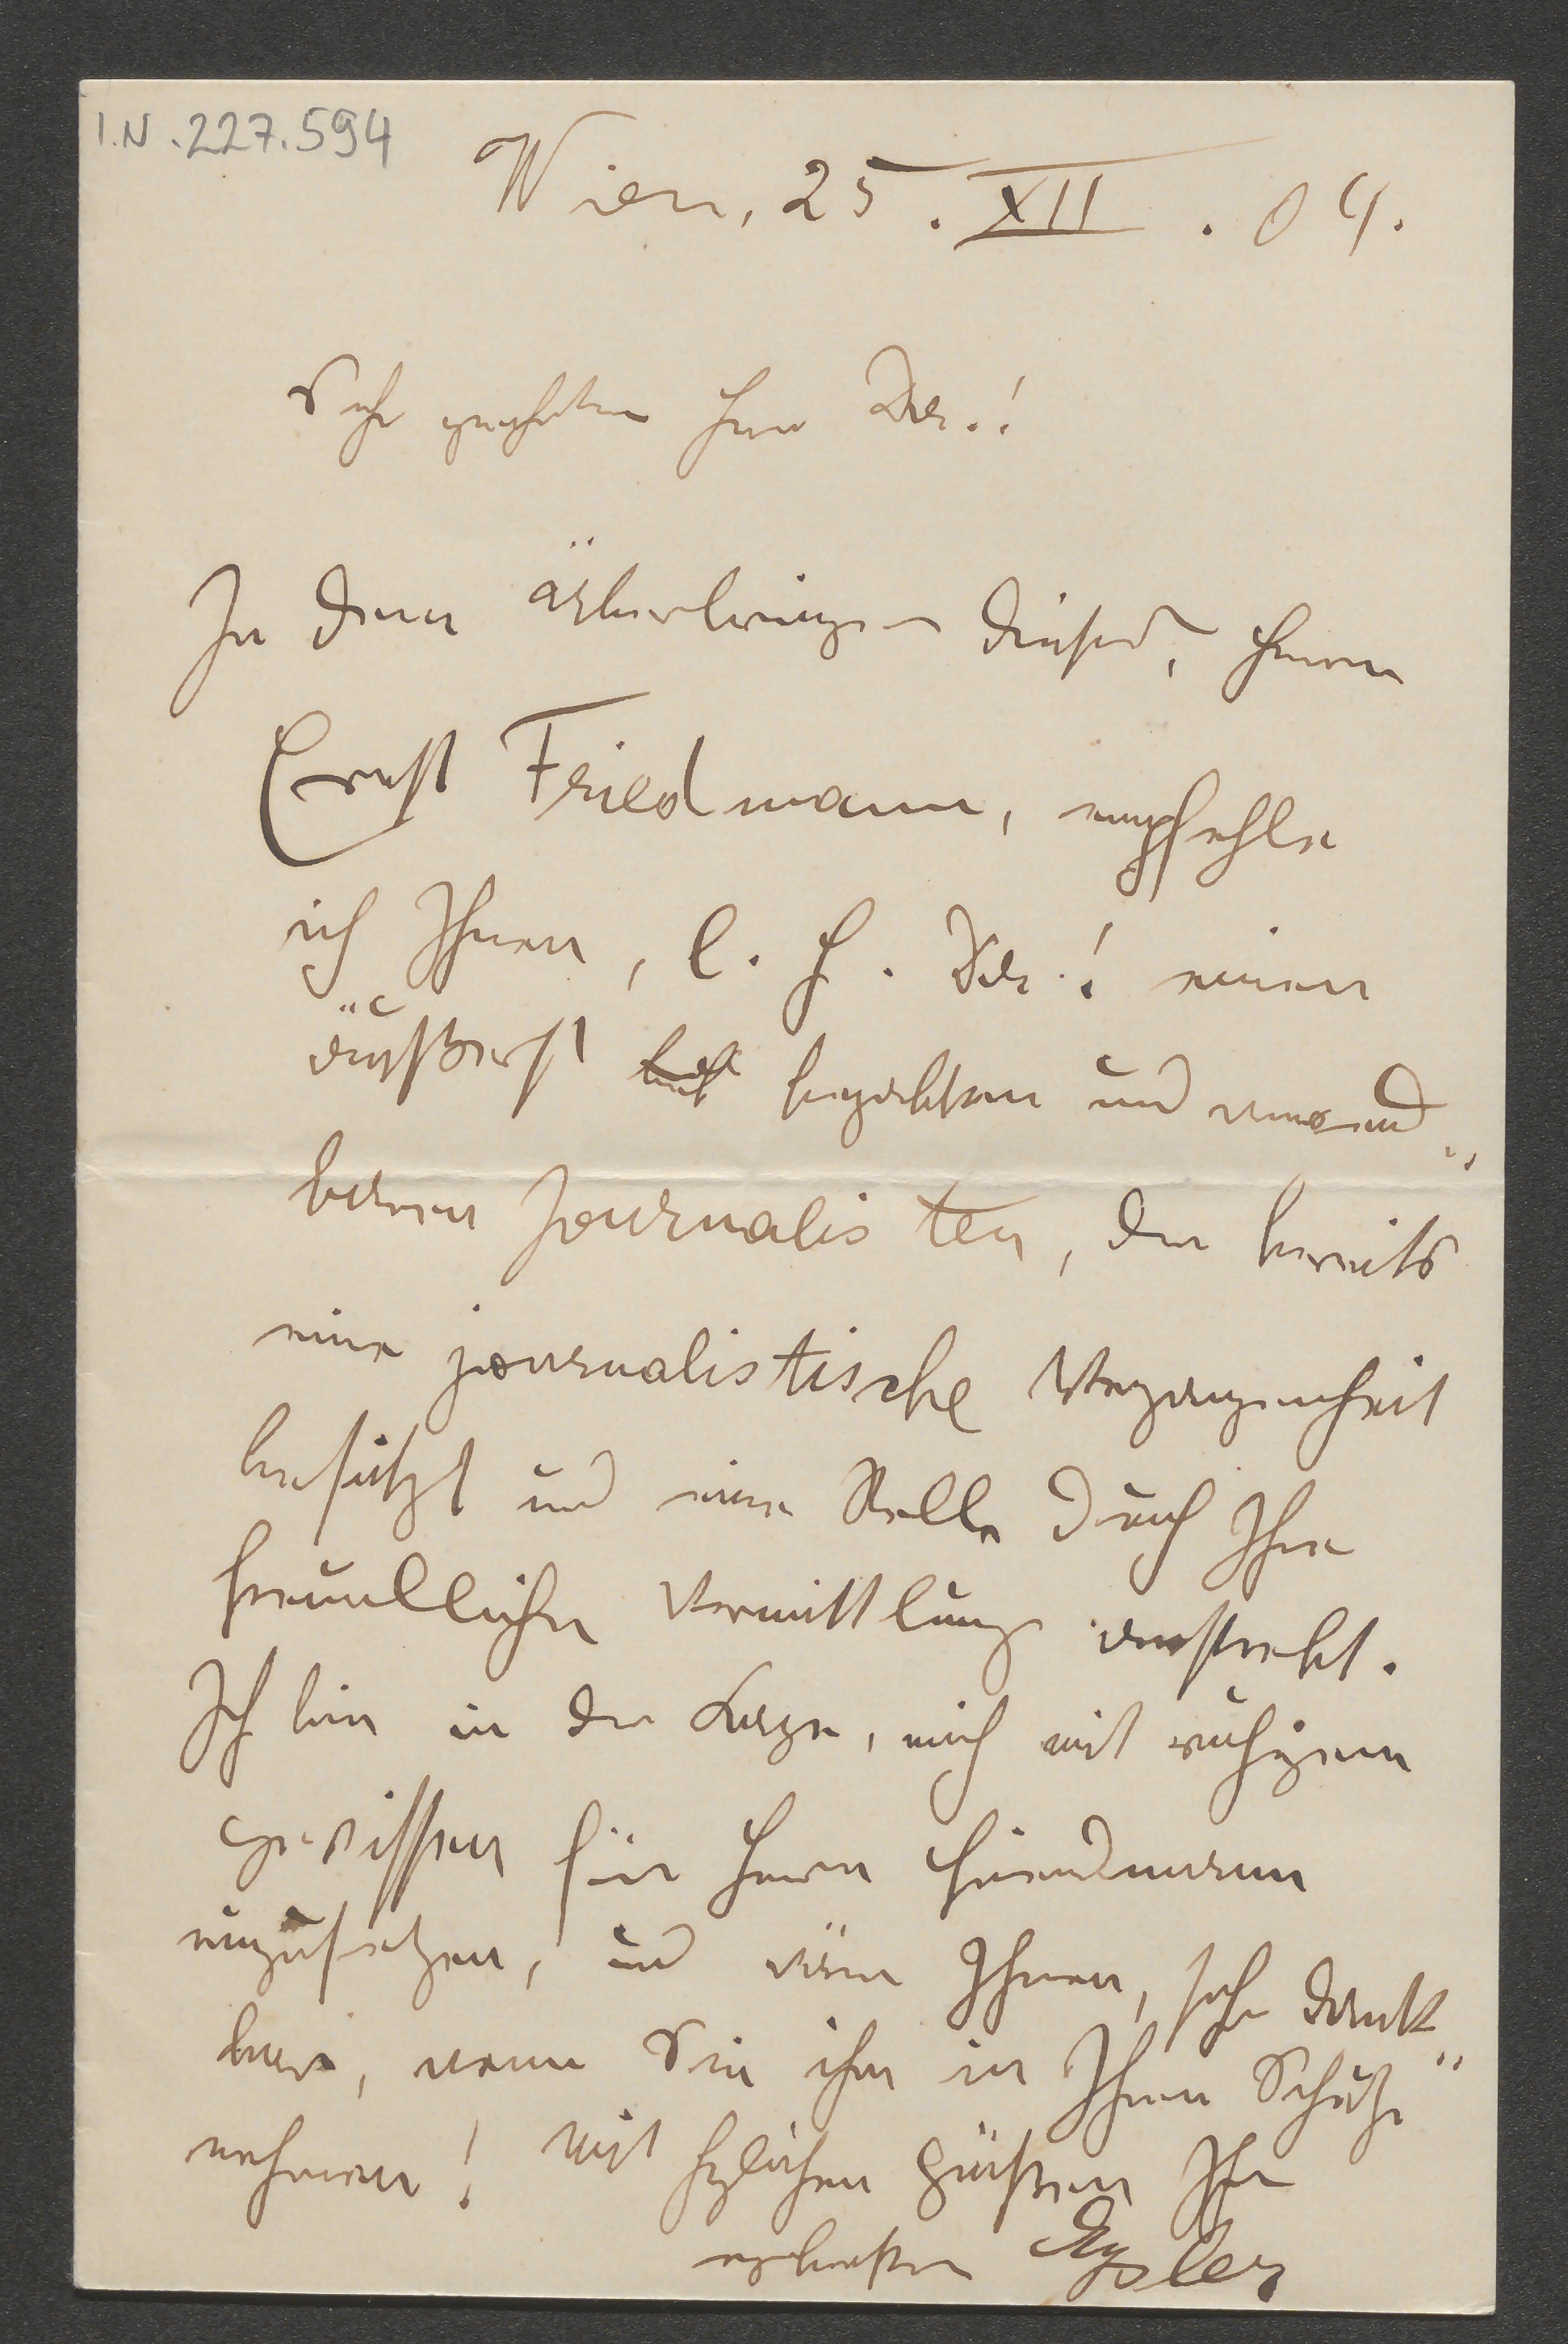 I.N.227.594
Wien, 25. XII. 04.
Sehr geehrter Herr Dr.!
In dem Überbringer dieses, Herrn
Ernst Friedmann, empfehle
ich Ihnen, l. H. Dr.! einen
äußerst begabten und verwend„
baren Journalisten, der bereits
eine journalistische Vergangenheit
besitzt und eine Stelle durch Ihre
freundliche Vermittlung anstrebt.
Ich bin in der Lage, mich mit ruhigem
Gewissen für Herrn Friedmann
einzusetzen, und wäre Ihnen, sehr dank„
bar, wenn Sie ihn in Ihren Schutz
nehmen! Mit hzlichen Grüßen Ihr
ergebenster Eysler